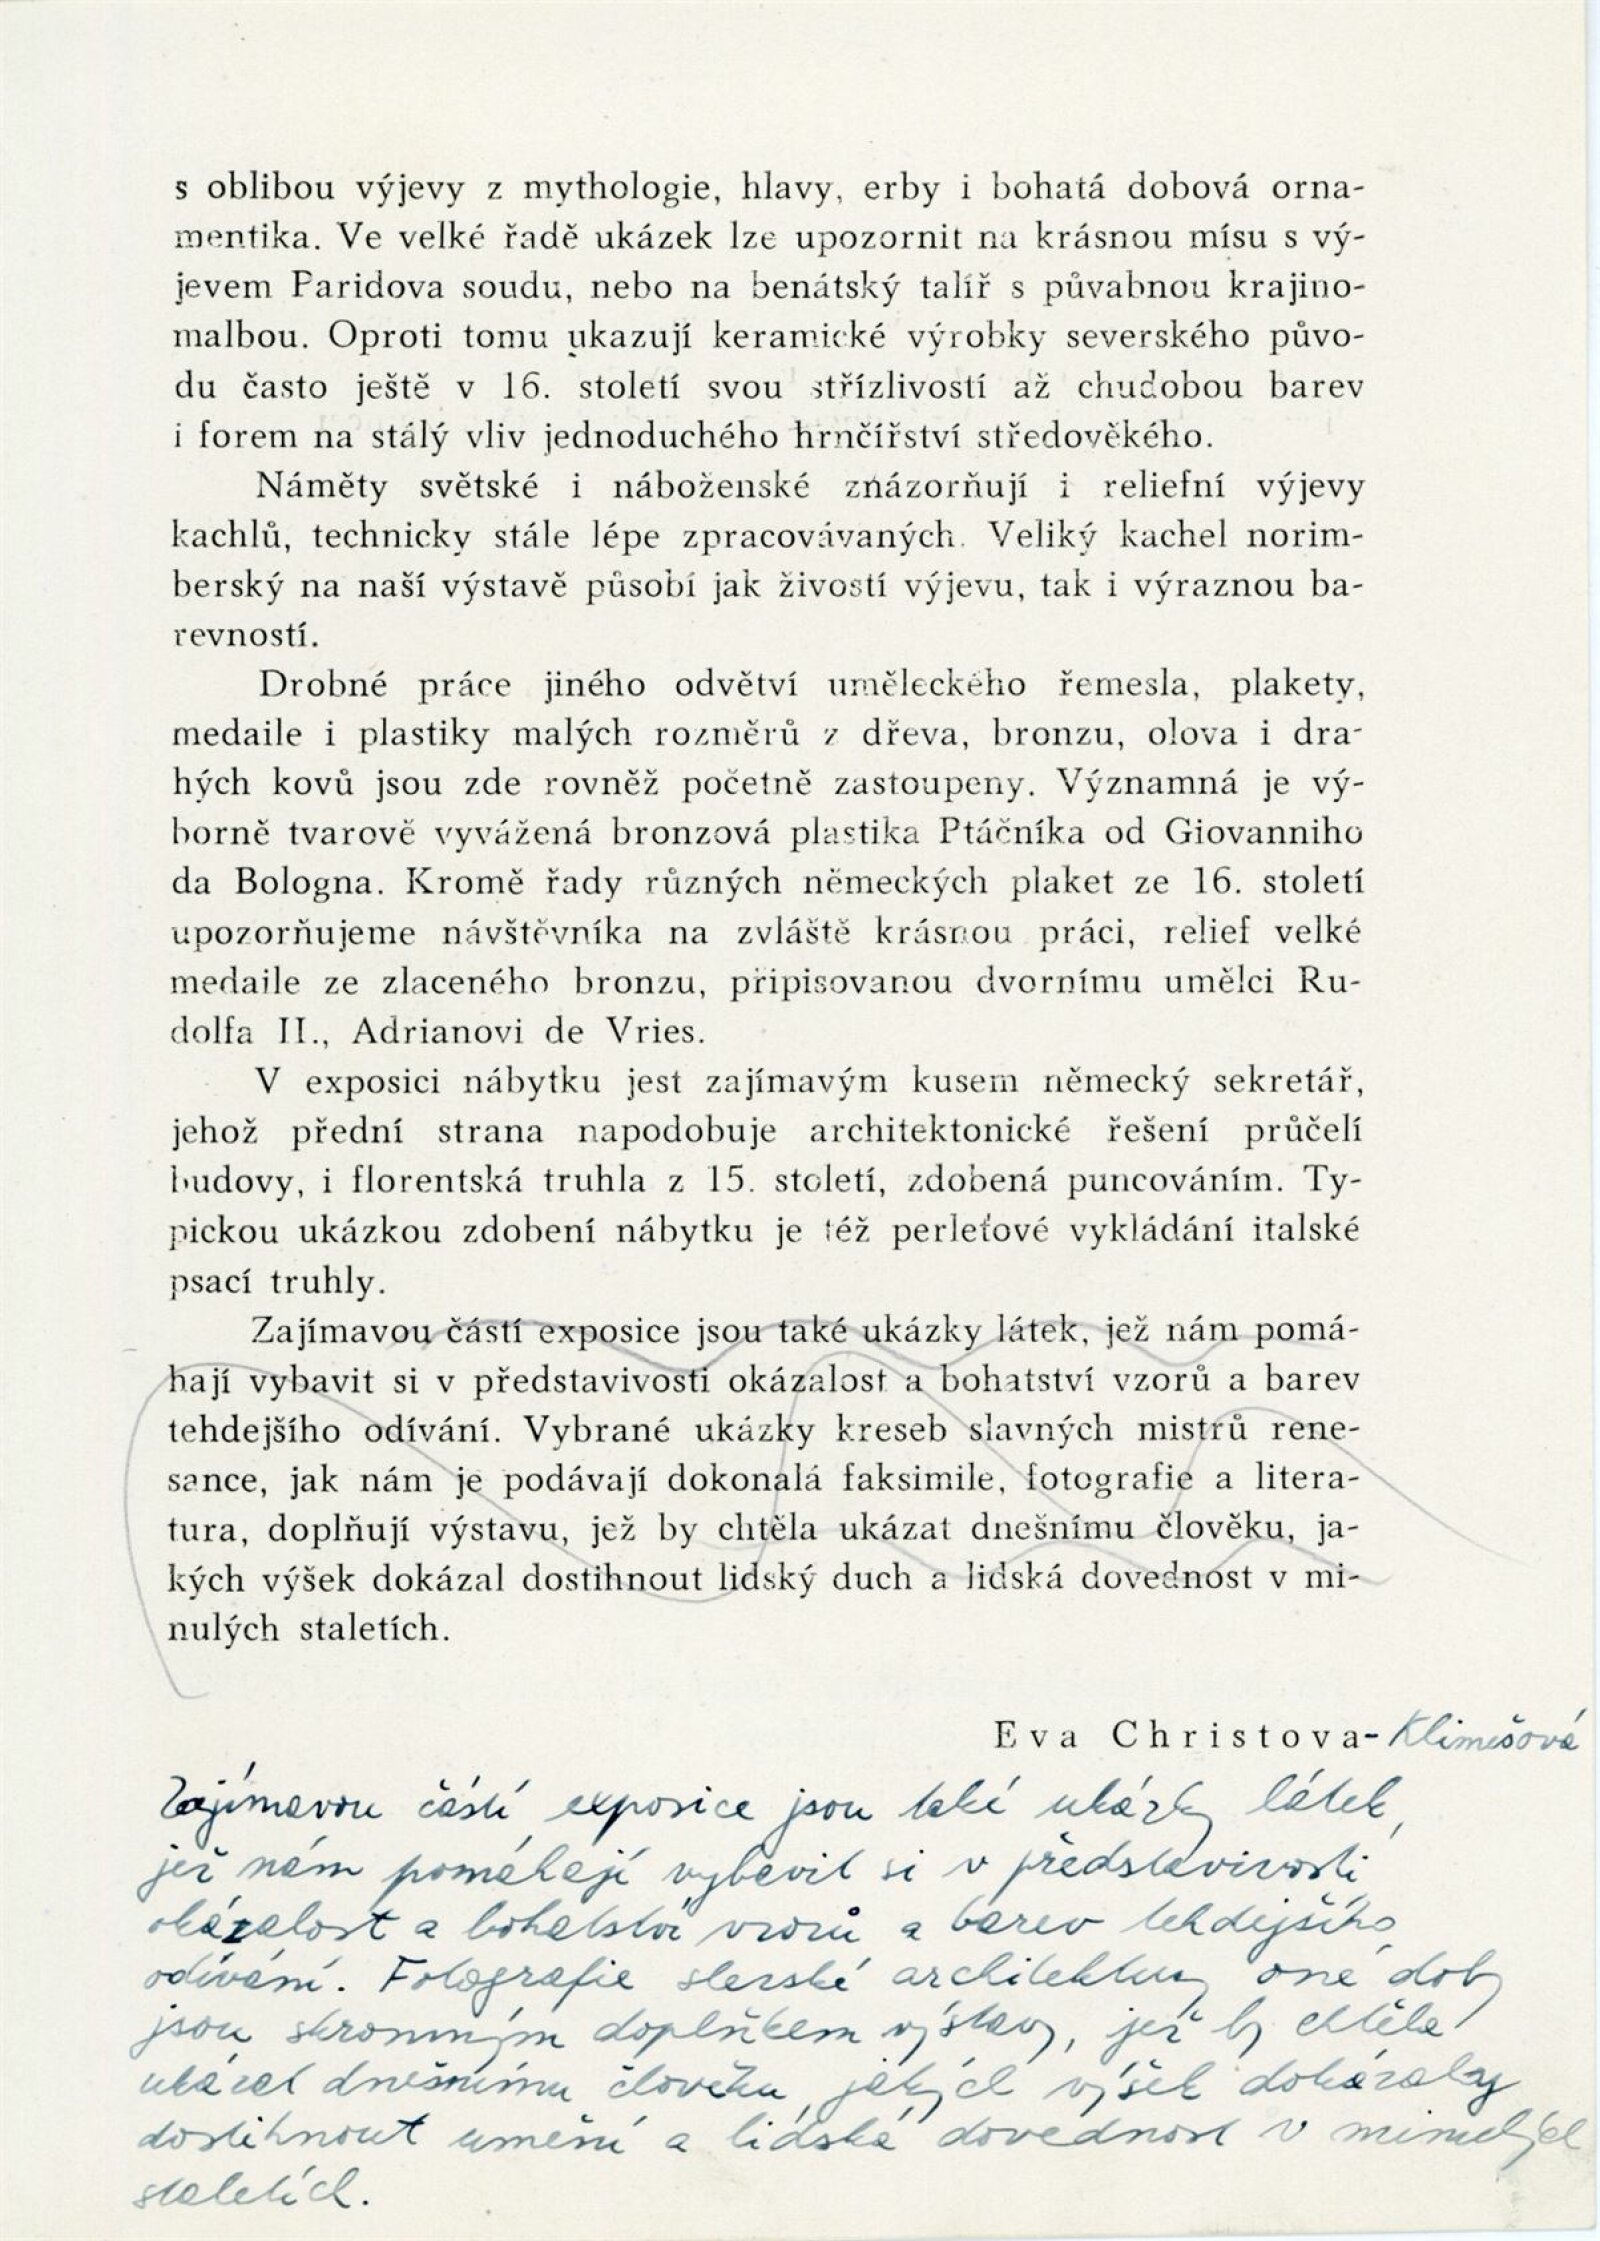 s oblibou výjevy z mythologie, hlavy, erby i bohatá dobová orna-
mentika. Ve velké řadě ukázek lze upozornit na krásnou mísu s vý-
jevem Paridova soudu, nebo na benátský talíř s půvabnou krajino-
malbou. Oproti tomu ukazují keramické výrobky severského půvo-
du často ještě v 16. století svou střízlivostí až chudobou barev
i forem na stálý vliv jednoduchého hrnčířství středověkého.
Náměty světské i náboženské znázorňují i reliefní výjevy
kachlů, technicky stále lépe zpracovávaných. Veliký kachel norim-
berský na naší výstavě působí jak živostí výjevu, tak i výraznou ba-
revností.
Drobné práce jiného odvětví uměleckého řemesla, plakety,
medaile i plastiky malých rozměrů z dřeva, bronzu, olova i dra-
hých kovů jsou zde rovněž početně zastoupeny. Významná je vý-
borně tvarově vyvážená bronzová plastika Ptáčníka od Giovanniho
da Bologna. Kromě řady různých německých plaket ze 16. století
upozorňujeme návštěvníka na zvláště krásnou práci, relief velké
medaile ze zlaceného bronzu, připisovanou dvornímu umělci Ru-
dolfa II., Adrianovi de Vries.
V exposici nábytku jest zajímavým kusem německý sekretář,
jehož přední strana napodobuje architektonické řešení průčelí
budovy, i florentská truhla z 15. století, zdobená puncováním. Ty-
pickou ukázkou zdobení nábytku je též perleťové vykládání italské
psací truhly.
Zajímavou částí exposice jsou také ukázky látek, jež nám pomá-
hají vybavit si v představivosti okázalost a bohatství vzorů a barev
tehdejšího odívání. Vybrané ukázky kreseb slavných mistrů rene-
sance, jak nám je podávají dokonalá faksimile, fotografie a litera-
tura, doplňují výstavu, jež by chtěla ukázat dnešnímu člověku, ja-
kých výšek dokázal dostihnout lidský duch a lidská dovednost v mi-
nulých staletích.
Eva Christova-Klimešová
Zajímavou částí exposice jsou také ukázky látek,
jež nám pomáhají vybavit si v představivosti
okázalost a bohatství vzorů a barev tehdejšího
odívání. Fotografie slezské architektury oné doby
jsou skromným doplňkem výstavy, jež by chtěla
ukázat dnešnímu člověku, jakých výšek dokázaly
dostihnout umění a lidská dovednost v minulých
staletích.